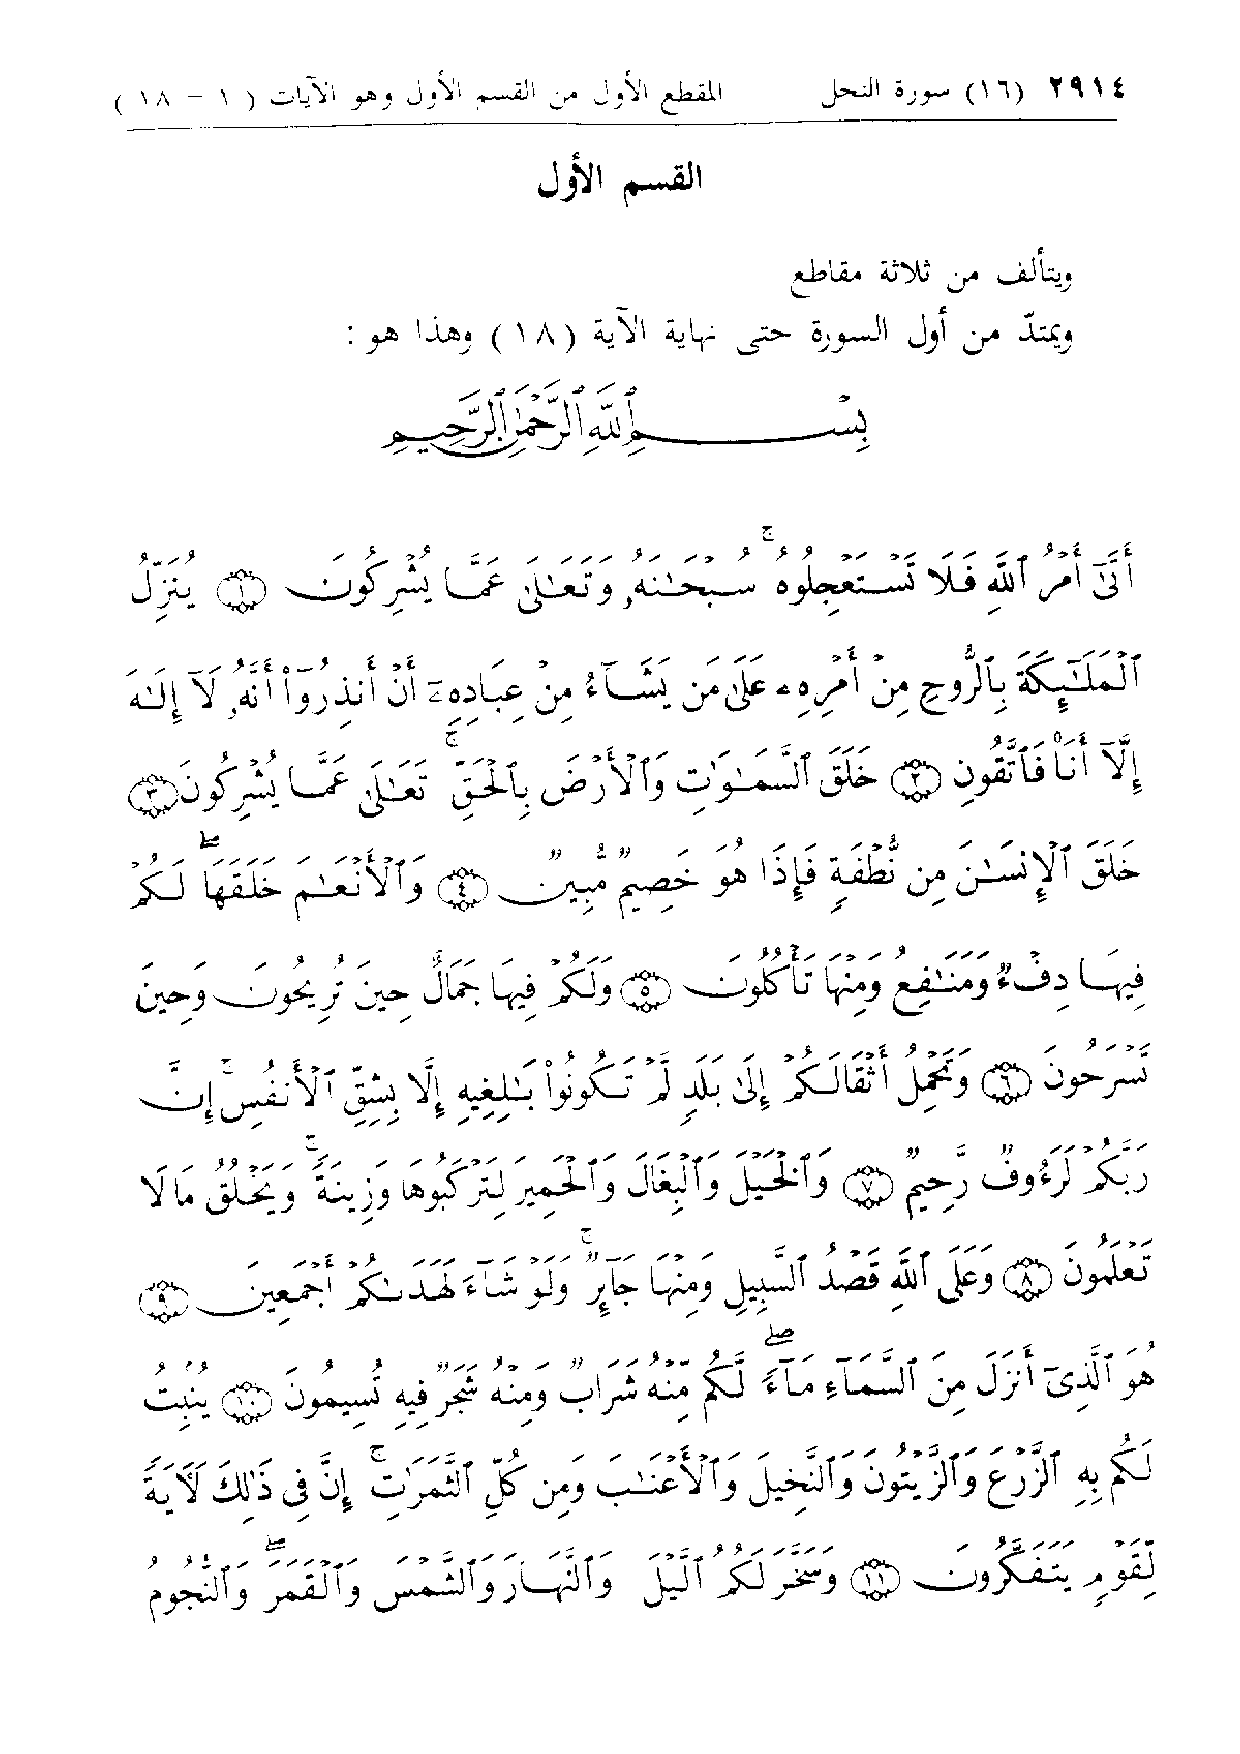 ٢٩١٤ (١٦) سورة النحل المقطع الأول من القسم الأول وهو الآيات ( ١ - ١٨ )
القسم الأول
ويتألف من ثلاثة مقاطع
ويمتدّ من أول السورة حتى نهاية الآية ( ١٨ ) وهذا هو :
بِسْمِ ٱللَّهِ ٱلرَّحْمَٰنِ ٱلرَّحِيمِ
أَتَىٰٓ أَمْرُ ٱللَّهِ فَلَا تَسْتَعْجِلُوهُ ۚ سُبْحَٰنَهُۥ وَتَعَٰلَىٰ عَمَّا يُشْرِكُونَ ﴿١﴾ يُنَزِّلُ
ٱلْمَلَٰٓئِكَةَ بِٱلرُّوحِ مِنْ أَمْرِهِۦ عَلَىٰ مَن يَشَآءُ مِنْ عِبَادِهِۦٓ أَنْ أَنذِرُوٓا۟ أَنَّهُۥ لَآ إِلَٰهَ
إِلَّآ أَنَا۠ فَٱتَّقُونِ ﴿٢﴾ خَلَقَ ٱلسَّمَٰوَٰتِ وَٱلْأَرْضَ بِٱلْحَقِّ ۚ تَعَٰلَىٰ عَمَّا يُشْرِكُونَ ﴿٣﴾
خَلَقَ ٱلْإِنسَٰنَ مِن نُّطْفَةٍ فَإِذَا هُوَ خَصِيمٌ مُّبِينٌ ﴿٤﴾ وَٱلْأَنْعَٰمَ خَلَقَهَا ۖ لَكُمْ
فِيهَا دِفْءٌ وَمَنَٰفِعُ وَمِنْهَا تَأْكُلُونَ ﴿٥﴾ وَلَكُمْ فِيهَا جَمَالٌ حِينَ تُرِيحُونَ وَحِينَ
تَسْرَحُونَ ﴿٦﴾ وَتَحْمِلُ أَثْقَالَكُمْ إِلَىٰ بَلَدٍ لَّمْ تَكُونُوا۟ بَٰلِغِيهِ إِلَّا بِشِقِّ ٱلْأَنفُسِ ۚ إِنَّ
رَبَّكُمْ لَرَءُوفٌ رَّحِيمٌ ﴿٧﴾ وَٱلْخَيْلَ وَٱلْبِغَالَ وَٱلْحَمِيرَ لِتَرْكَبُوهَا وَزِينَةً ۚ وَيَخْلُقُ مَا لَا
تَعْلَمُونَ ﴿٨﴾ وَعَلَى ٱللَّهِ قَصْدُ ٱلسَّبِيلِ وَمِنْهَا جَآئِرٌ ۚ وَلَوْ شَآءَ لَهَدَىٰكُمْ أَجْمَعِينَ ﴿٩﴾
هُوَ ٱلَّذِىٓ أَنزَلَ مِنَ ٱلسَّمَآءِ مَآءً ۖ لَّكُم مِّنْهُ شَرَابٌ وَمِنْهُ شَجَرٌ فِيهِ تُسِيمُونَ ﴿١٠﴾ يُنۢبِتُ
لَكُم بِهِ ٱلزَّرْعَ وَٱلزَّيْتُونَ وَٱلنَّخِيلَ وَٱلْأَعْنَٰبَ وَمِن كُلِّ ٱلثَّمَرَٰتِ ۚ إِنَّ فِى ذَٰلِكَ لَءَايَةً
لِّقَوْمٍ يَتَفَكَّرُونَ ﴿١١﴾ وَسَخَّرَ لَكُمُ ٱلَّيْلَ وَٱلنَّهَارَ وَٱلشَّمْسَ وَٱلْقَمَرَ ۖ وَٱلنُّجُومُ